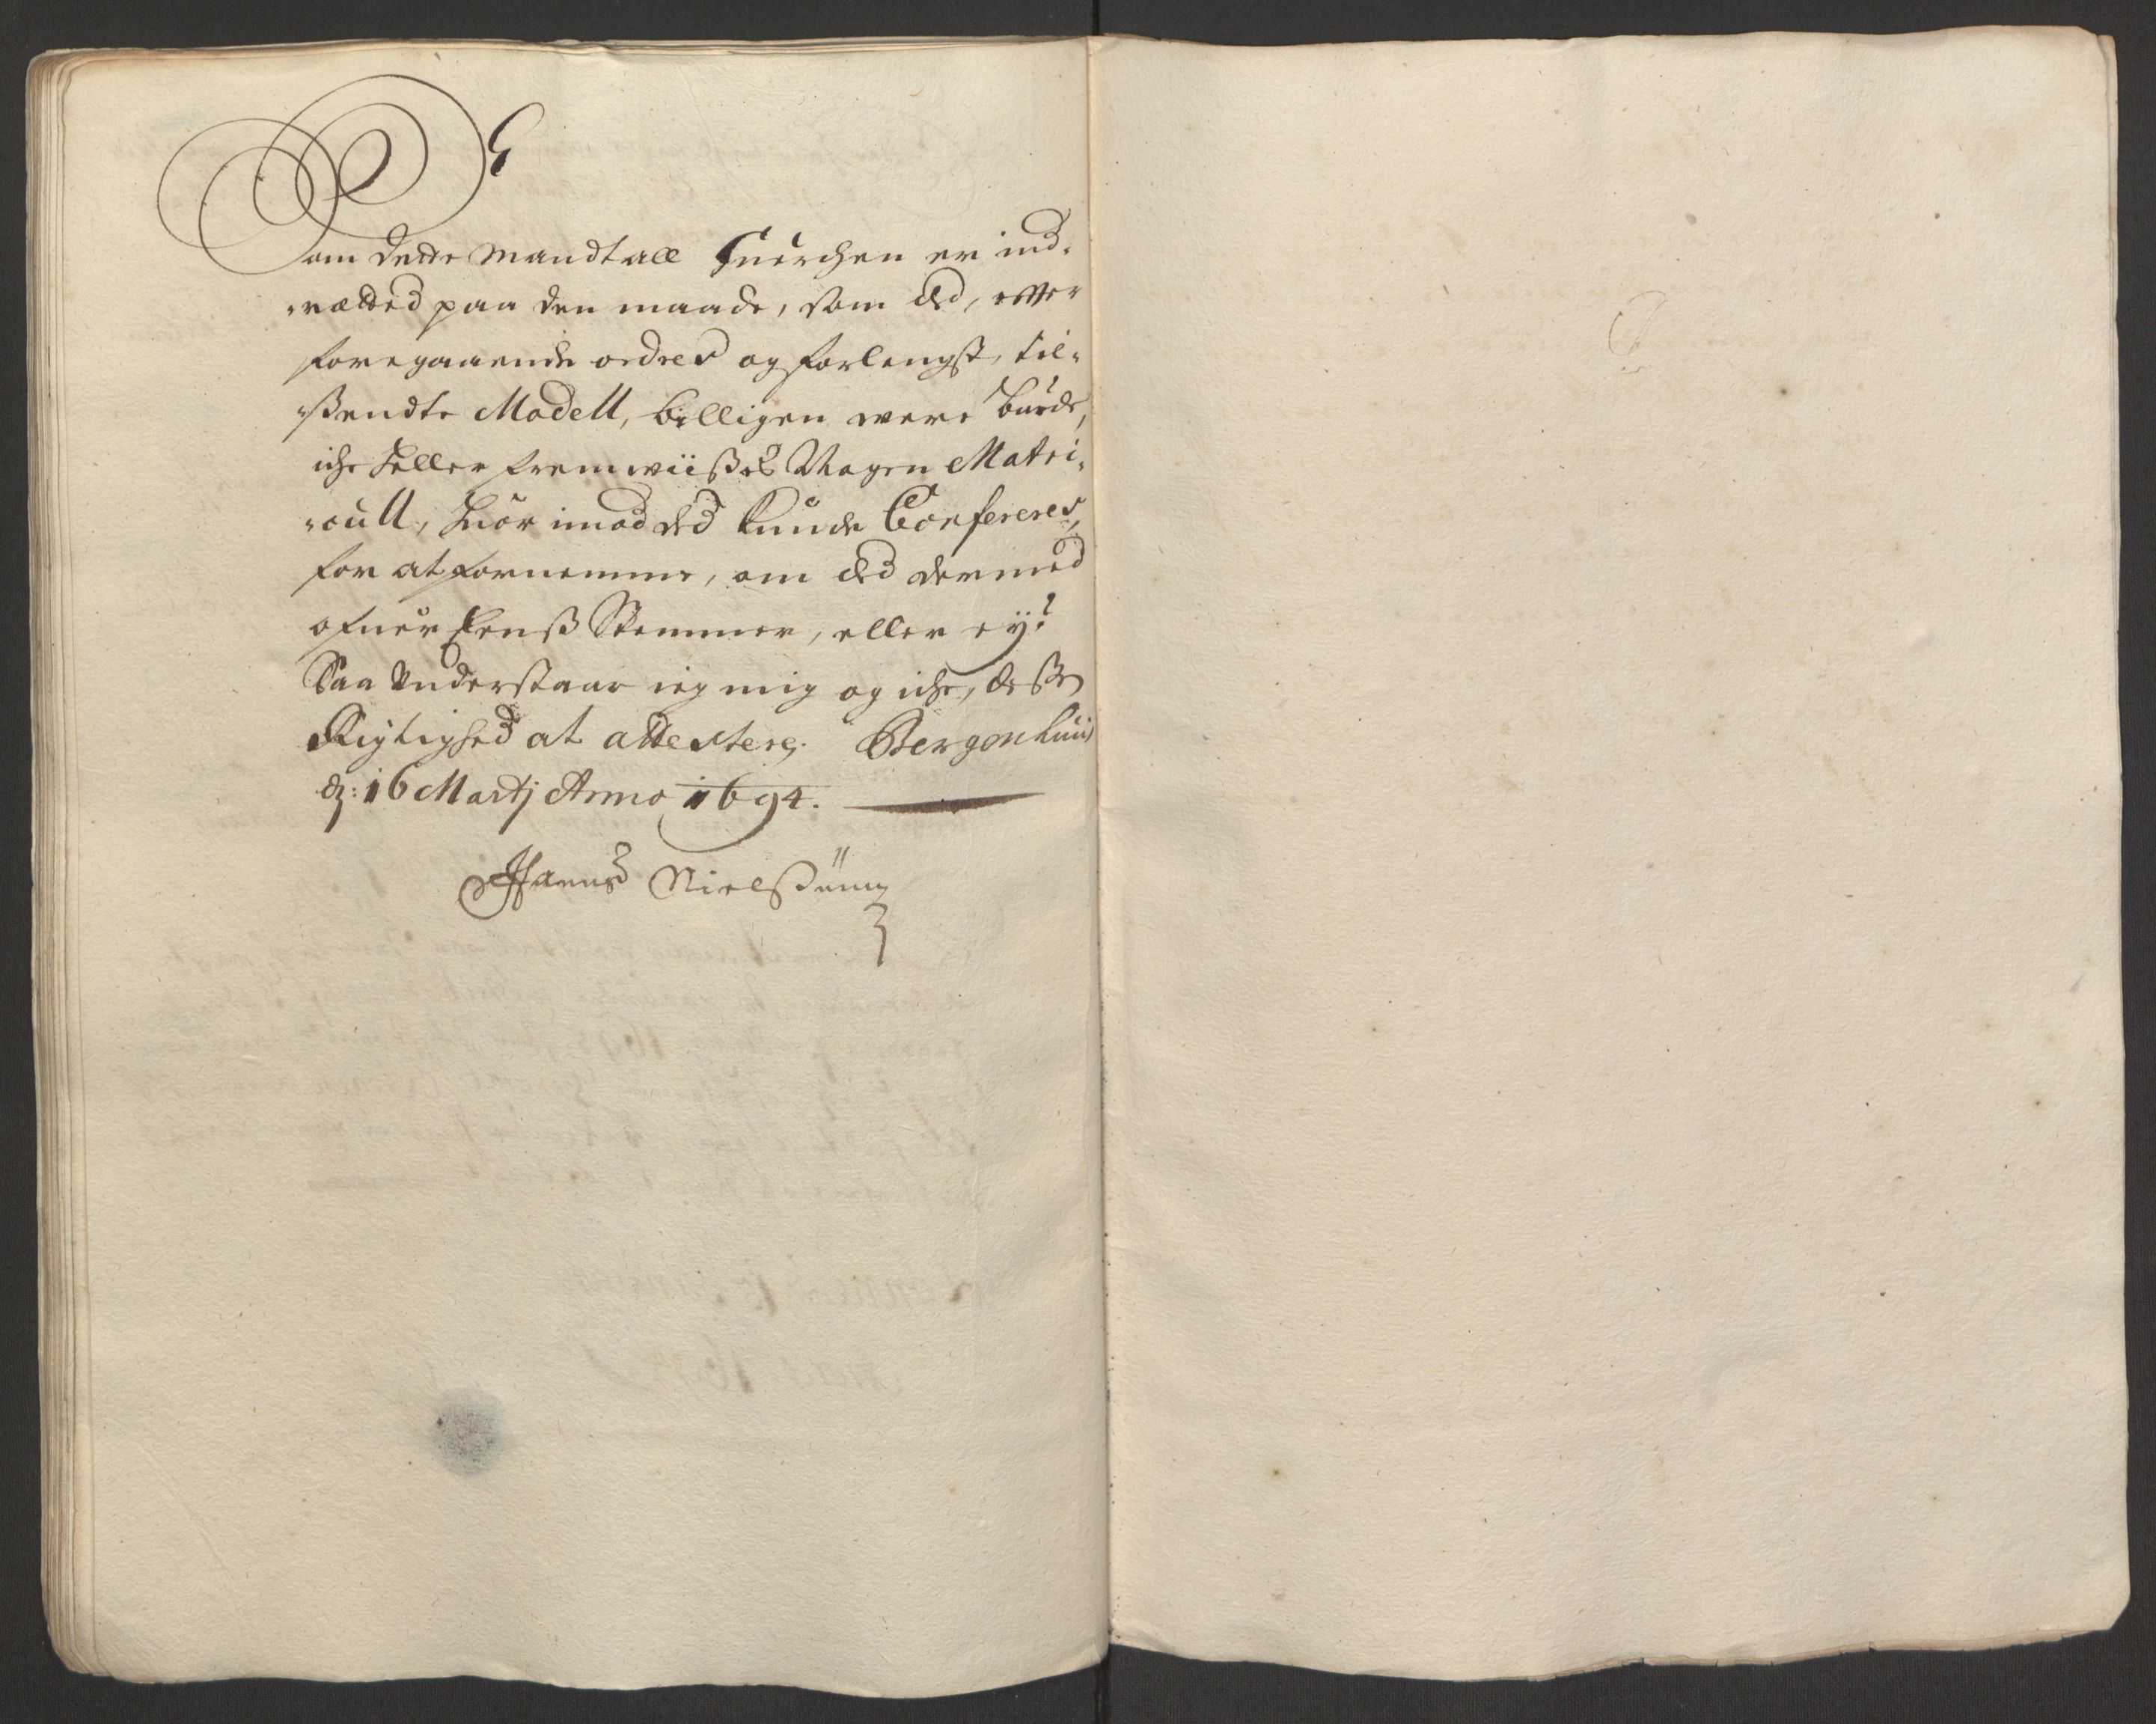 Som dette Mandtall huerchen er ind-
rætted paa den maade, som ded, effter
foregaaende ordres og forlengst, til-
ßendte Modell, billigen were burde,
iche heller fremwiißes Nogen Matri-
cull, huor imod ded kunde Confereres,
for at fornemme, om ded dermed
ofuer Eenß Stemmer, eller ey?
Saa Understaar ieg mig og iche, deßen
Rigtighed at attestere. Bergenhuus
d: 16 Martj Anno 1694.
Hanns Nielßønn